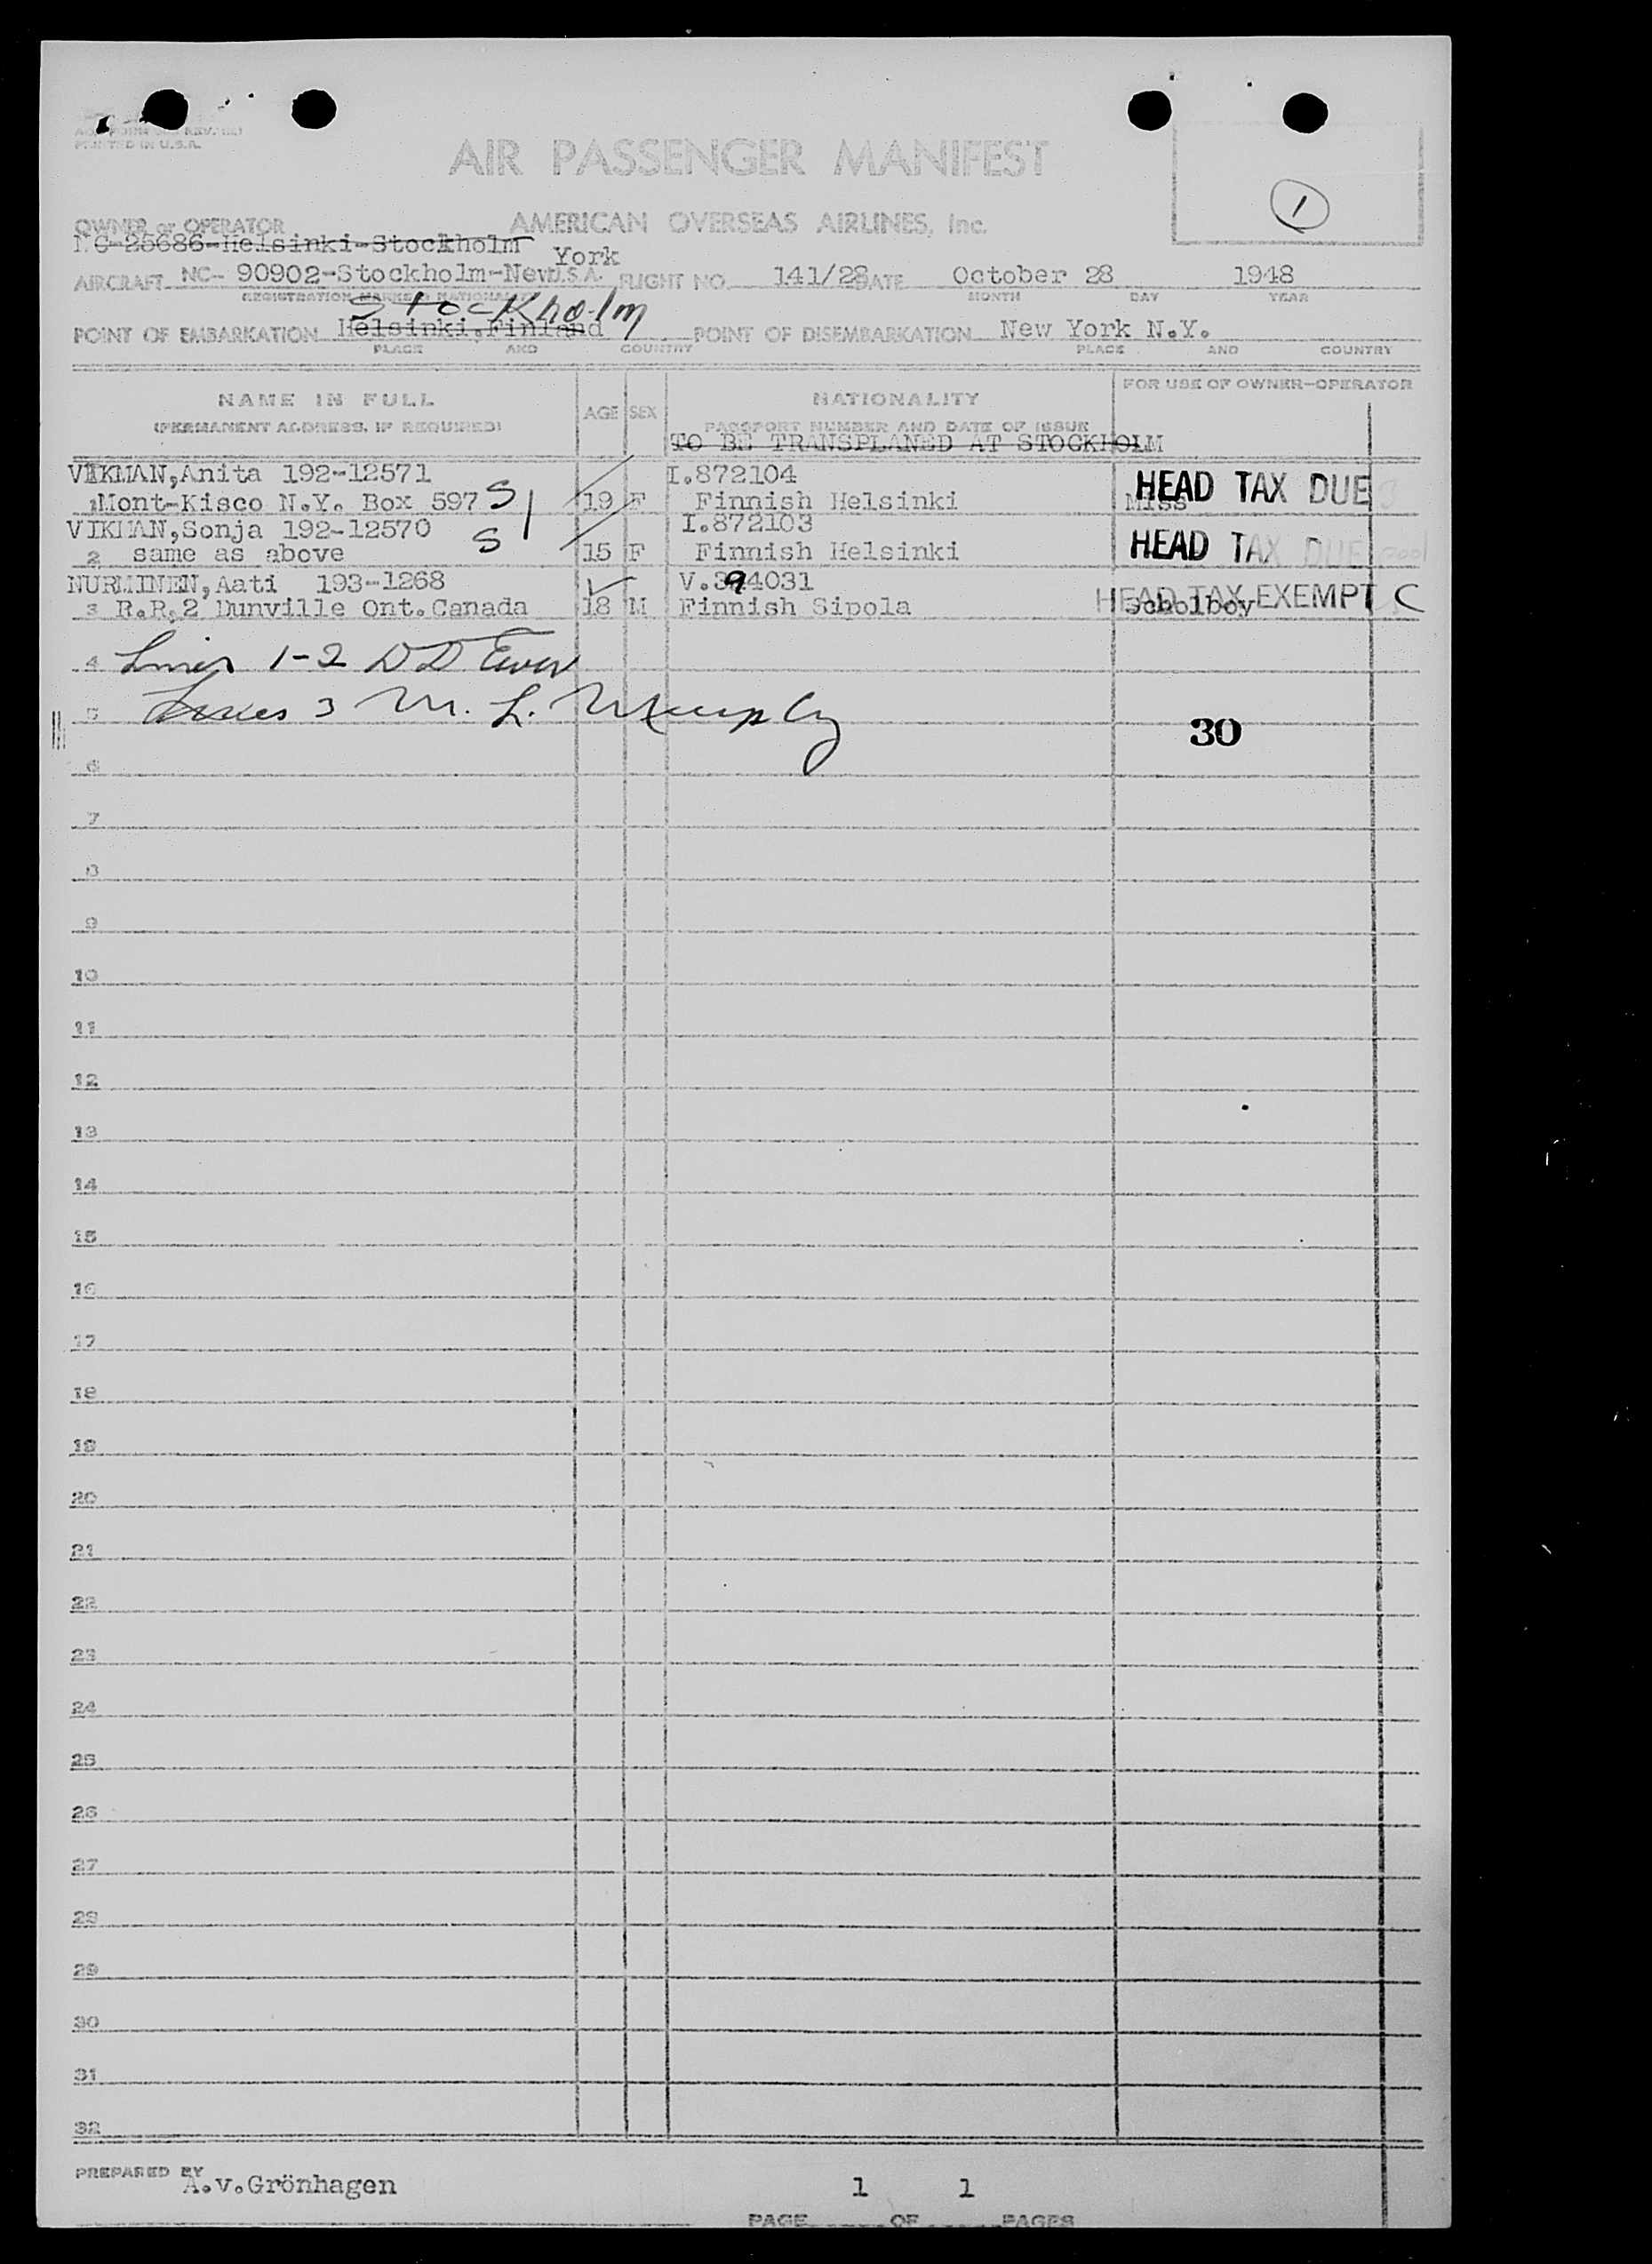 PRINTED IN U.S.A.
AIR PASSENGER MANIFEST
1
OWNER or OPERATOR AMERICAN OVERSEAS AIRLINES, Inc.
NC-25686-Helsinki-Stockholm
York
AIRCRAFT NC- 90902-Stockholm-New U.S.A. FLIGHT NO. 141/28 DATE October 28 1948
REGISTRATION MARKS & NATIONALITY MONTH DAY YEAR
Stockholm
POINT OF EMBARKATION Helsinki, Finland POINT OF DISEMBARKATION New York N.Y.
PLACE AND COUNTRY PLACE AND COUNTRY
NAME IN FULL AGE SEX NATIONALITY FOR USE OF OWNER-OPERATOR
(PERMANENT ADDRESS, IF REQUIRED) PASSPORT NUMBER AND DATE OF ISSUE
TO BE TRANSPLANED AT STOCKHOLM
VIKMAN, Anita 192-12571 I.872104 HEAD TAX DUE
1 Mont-Kisco N.Y. Box 597 S 19 F Finnish Helsinki Miss
VIKMAN, Sonja 192-12570 I.872103
2 same as above S 15 F Finnish Helsinki HEAD TAX DUE
NURMINEN, Aati 193-1268 V.394031 HEAD TAX EXEMPT C
3 R.R. 2 Dunville Ont. Canada 18 M Finnish Sipola Scholboy
4 Lines 1-2 DD
5 Lines 3 M. L. Murphy
30
6
7
8
9
10
11
12
13
14
15
16
17
18
19
20
21
22
23
24
25
26
27
28
29
30
31
32
PREPARED BY A.v.Grönhagen
PAGE 1 OF 1 PAGES